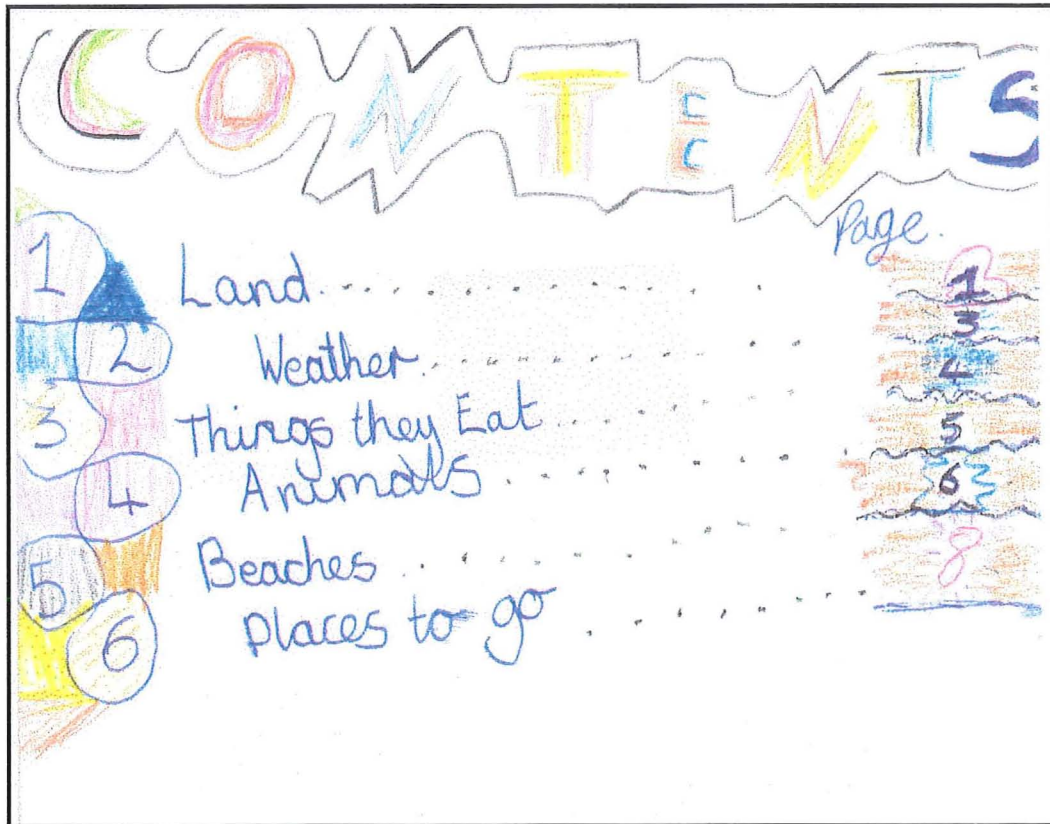 CONTENTS
Page.
1 Land 1
2 Weather 3
3 Things they Eat 4
4 Animals 5
5 Beaches 6
6 Places to go 8